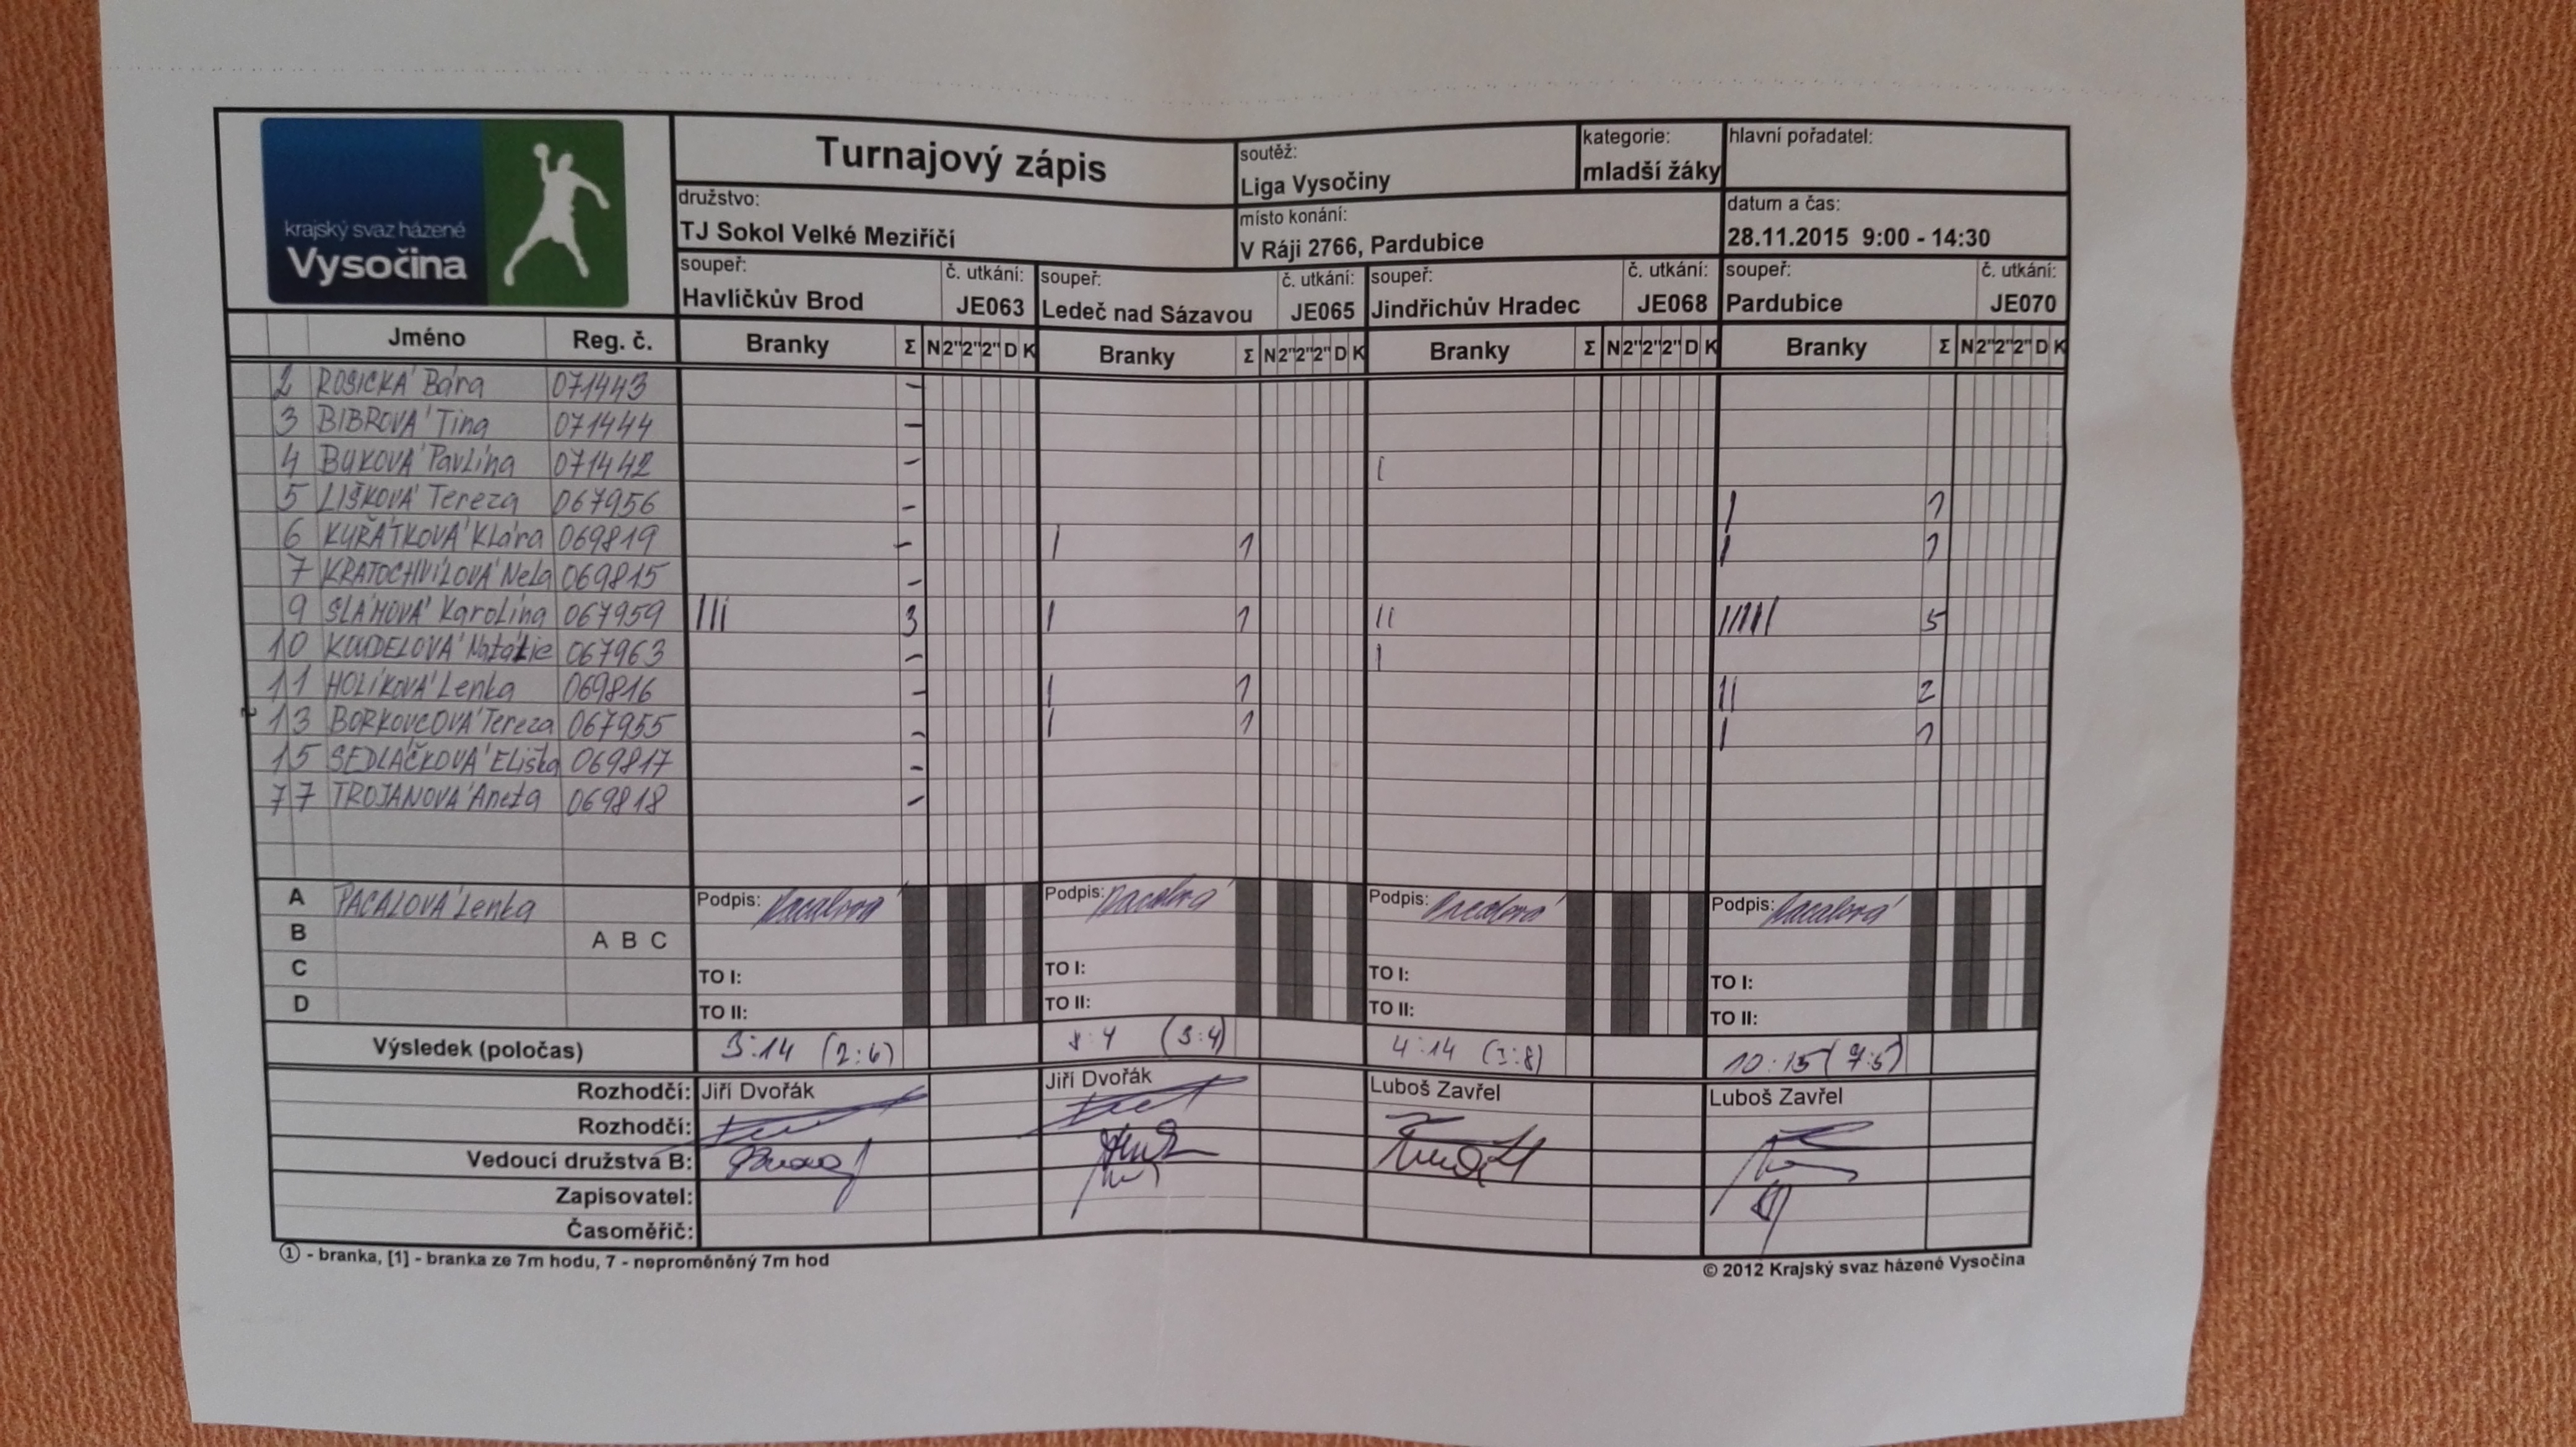 krajský svaz házené
Vysočina
Turnajový zápis
soutěž:
Liga Vysočiny
kategorie:
mladší žáky
hlavní pořadatel:
družstvo:
TJ Sokol Velké Meziříčí
místo konání:
V Ráji 2766, Pardubice
datum a čas:
28.11.2015 9:00 - 14:30
soupeř: č. utkání: soupeř: č. utkání: soupeř: č. utkání: soupeř: č. utkání:
Havlíčkův Brod JE063 Ledeč nad Sázavou JE065 Jindřichův Hradec JE068 Pardubice JE070
Jméno Reg. č. Branky Σ N 2" 2" 2" D K Branky Σ N 2" 2" 2" D K Branky Σ N 2" 2" 2" D K Branky Σ N 2" 2" 2" D K
2 ROSICKÁ Bára 071443 -
3 BIBROVÁ Tina 071444 -
4 BUKOVÁ Pavlína 071442 - I
5 LIŠKOVÁ Tereza 067956 - I 1
6 KUŘÁTKOVÁ Klára 069819 - I 1 I 1
7 KRATOCHVÍLOVÁ Nela 069815 -
9 SLÁMOVÁ Karolína 067959 III 3 I 1 II IIIII 5
10 KOUDELOVÁ Natálie 067963 - I
11 HOLÍKOVÁ Lenka 069816 - I 1 II 2
13 BORKOVCOVÁ Tereza 067955 - I 1 I 1
15 SEDLÁČKOVÁ Eliška 069817 -
77 TROJANOVÁ Aneta 069818 -
A PACALOVÁ Lenka Podpis: Pacalová Podpis: Pacalová Podpis: Pacalová Podpis: Pacalová
B A B C
C TO I: TO I: TO I: TO I:
D TO II: TO II: TO II: TO II:
Výsledek (poločas) 3:14 (2:6) 8:4 (3:4) 4:14 10:15
Rozhodčí: Jiří Dvořák Jiří Dvořák Luboš Zavřel Luboš Zavřel
Rozhodčí:
Vedoucí družstva B:
Zapisovatel:
Časoměřič:
① - branka, [1] - branka ze 7m hodu, 7 - neproměněný 7m hod
© 2012 Krajský svaz házené Vysočina